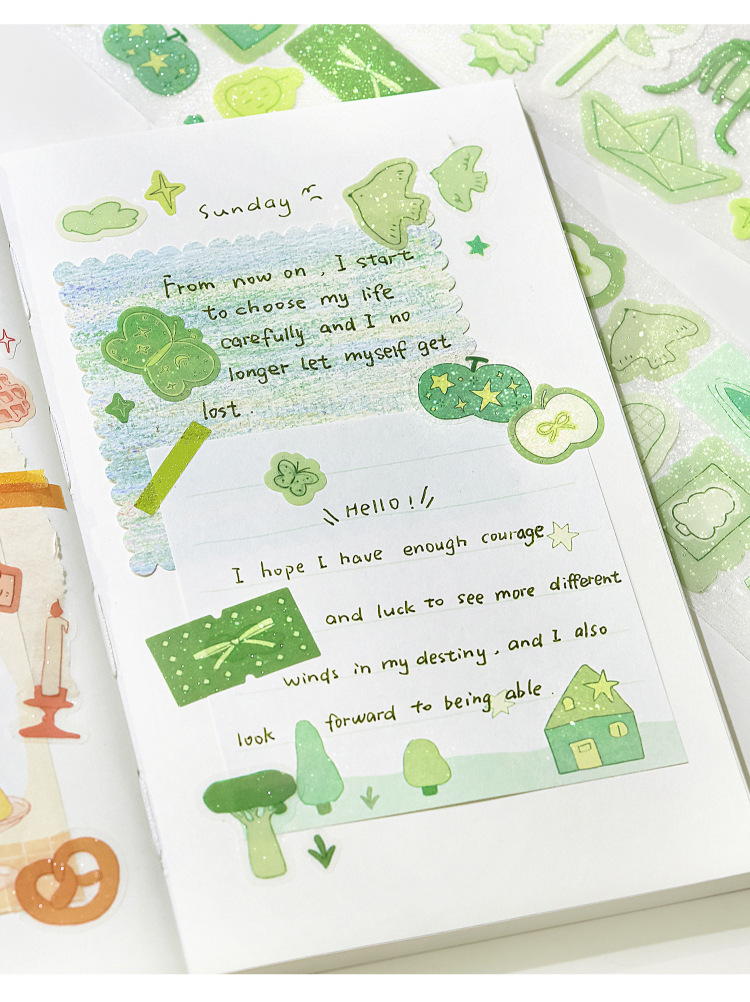 Sunday
From now on, I start
to choose my life
carefully and I no
longer let myself get
lost.
Hello!
I hope I have enough courage
and luck to see more different
winds in my destiny, and I also
look forward to being able.